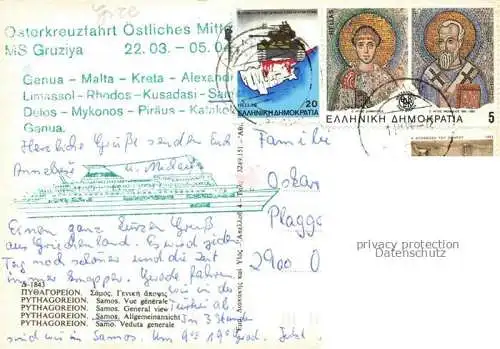 Osterkreuzfahrt Östliches Mitte
MS Gruziya 22.03. - 05.04
Genua - Malta - Kreta - Alexandr
Limassol - Rhodos - Kusadasi - Sam
Delos - Mykonos - Piräus - Katakol
Genua.
HELLAS
20
ΕΛΛΗΝΙΚΗ ΔΗΜΟΚΡΑΤΙΑ
HELLAS
ΕΛΛΗΝΙΚΗ ΔΗΜΟΚΡΑΤΙΑ 5
Herzliche Grüße senden Euch
Anneliese u.
Familie
Oskar
Plagge
2900 O
Einen ganz kurzen Gruß
aus Griechenland. Es wird jeden
Tag noch schöner und die Zeit
immer knapper. Gerade fahren
wir in der
Türkei ab.
In 3 Stunden
sind wir in Samos. Um 9 19 Grad. Jetzt
Δ-1843
ΠΥΘΑΓΟΡΕΙΟΝ. Σάμος. Γενική άποψις
PYTHAGOREION. Samos. Vue générale
PYTHAGOREION. Samos. General view
PYTHAGOREION. Samos. Allgemeinansicht
PYTHAGOREION. Samos. Veduta generale
privacy protection
Datenschutz